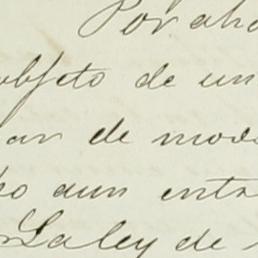 Por aho
objeto de un
ar de mode
ho aun enta
La ley de